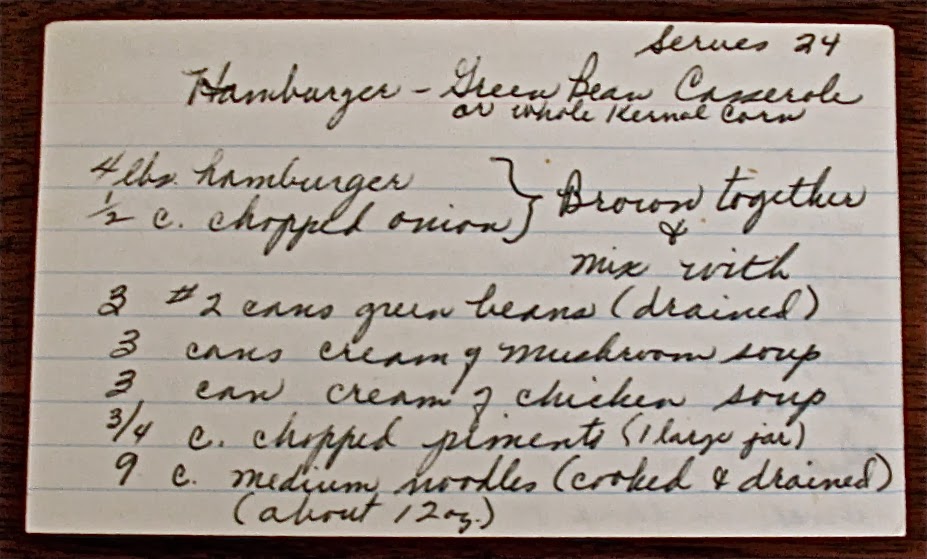 Serves 24
Hamburger - Green Bean Casserole
or whole Kernal Corn
4 lbs. hamburger
1/2 c. chopped onion } Brown together
&
mix with
3 #2 cans green beans (drained)
3 cans cream of mushroom soup
3 can cream of chicken soup
3/4 c. chopped pimento (1 large jar)
9 c. medium noodles (cooked & drained)
(about 12 oz.)